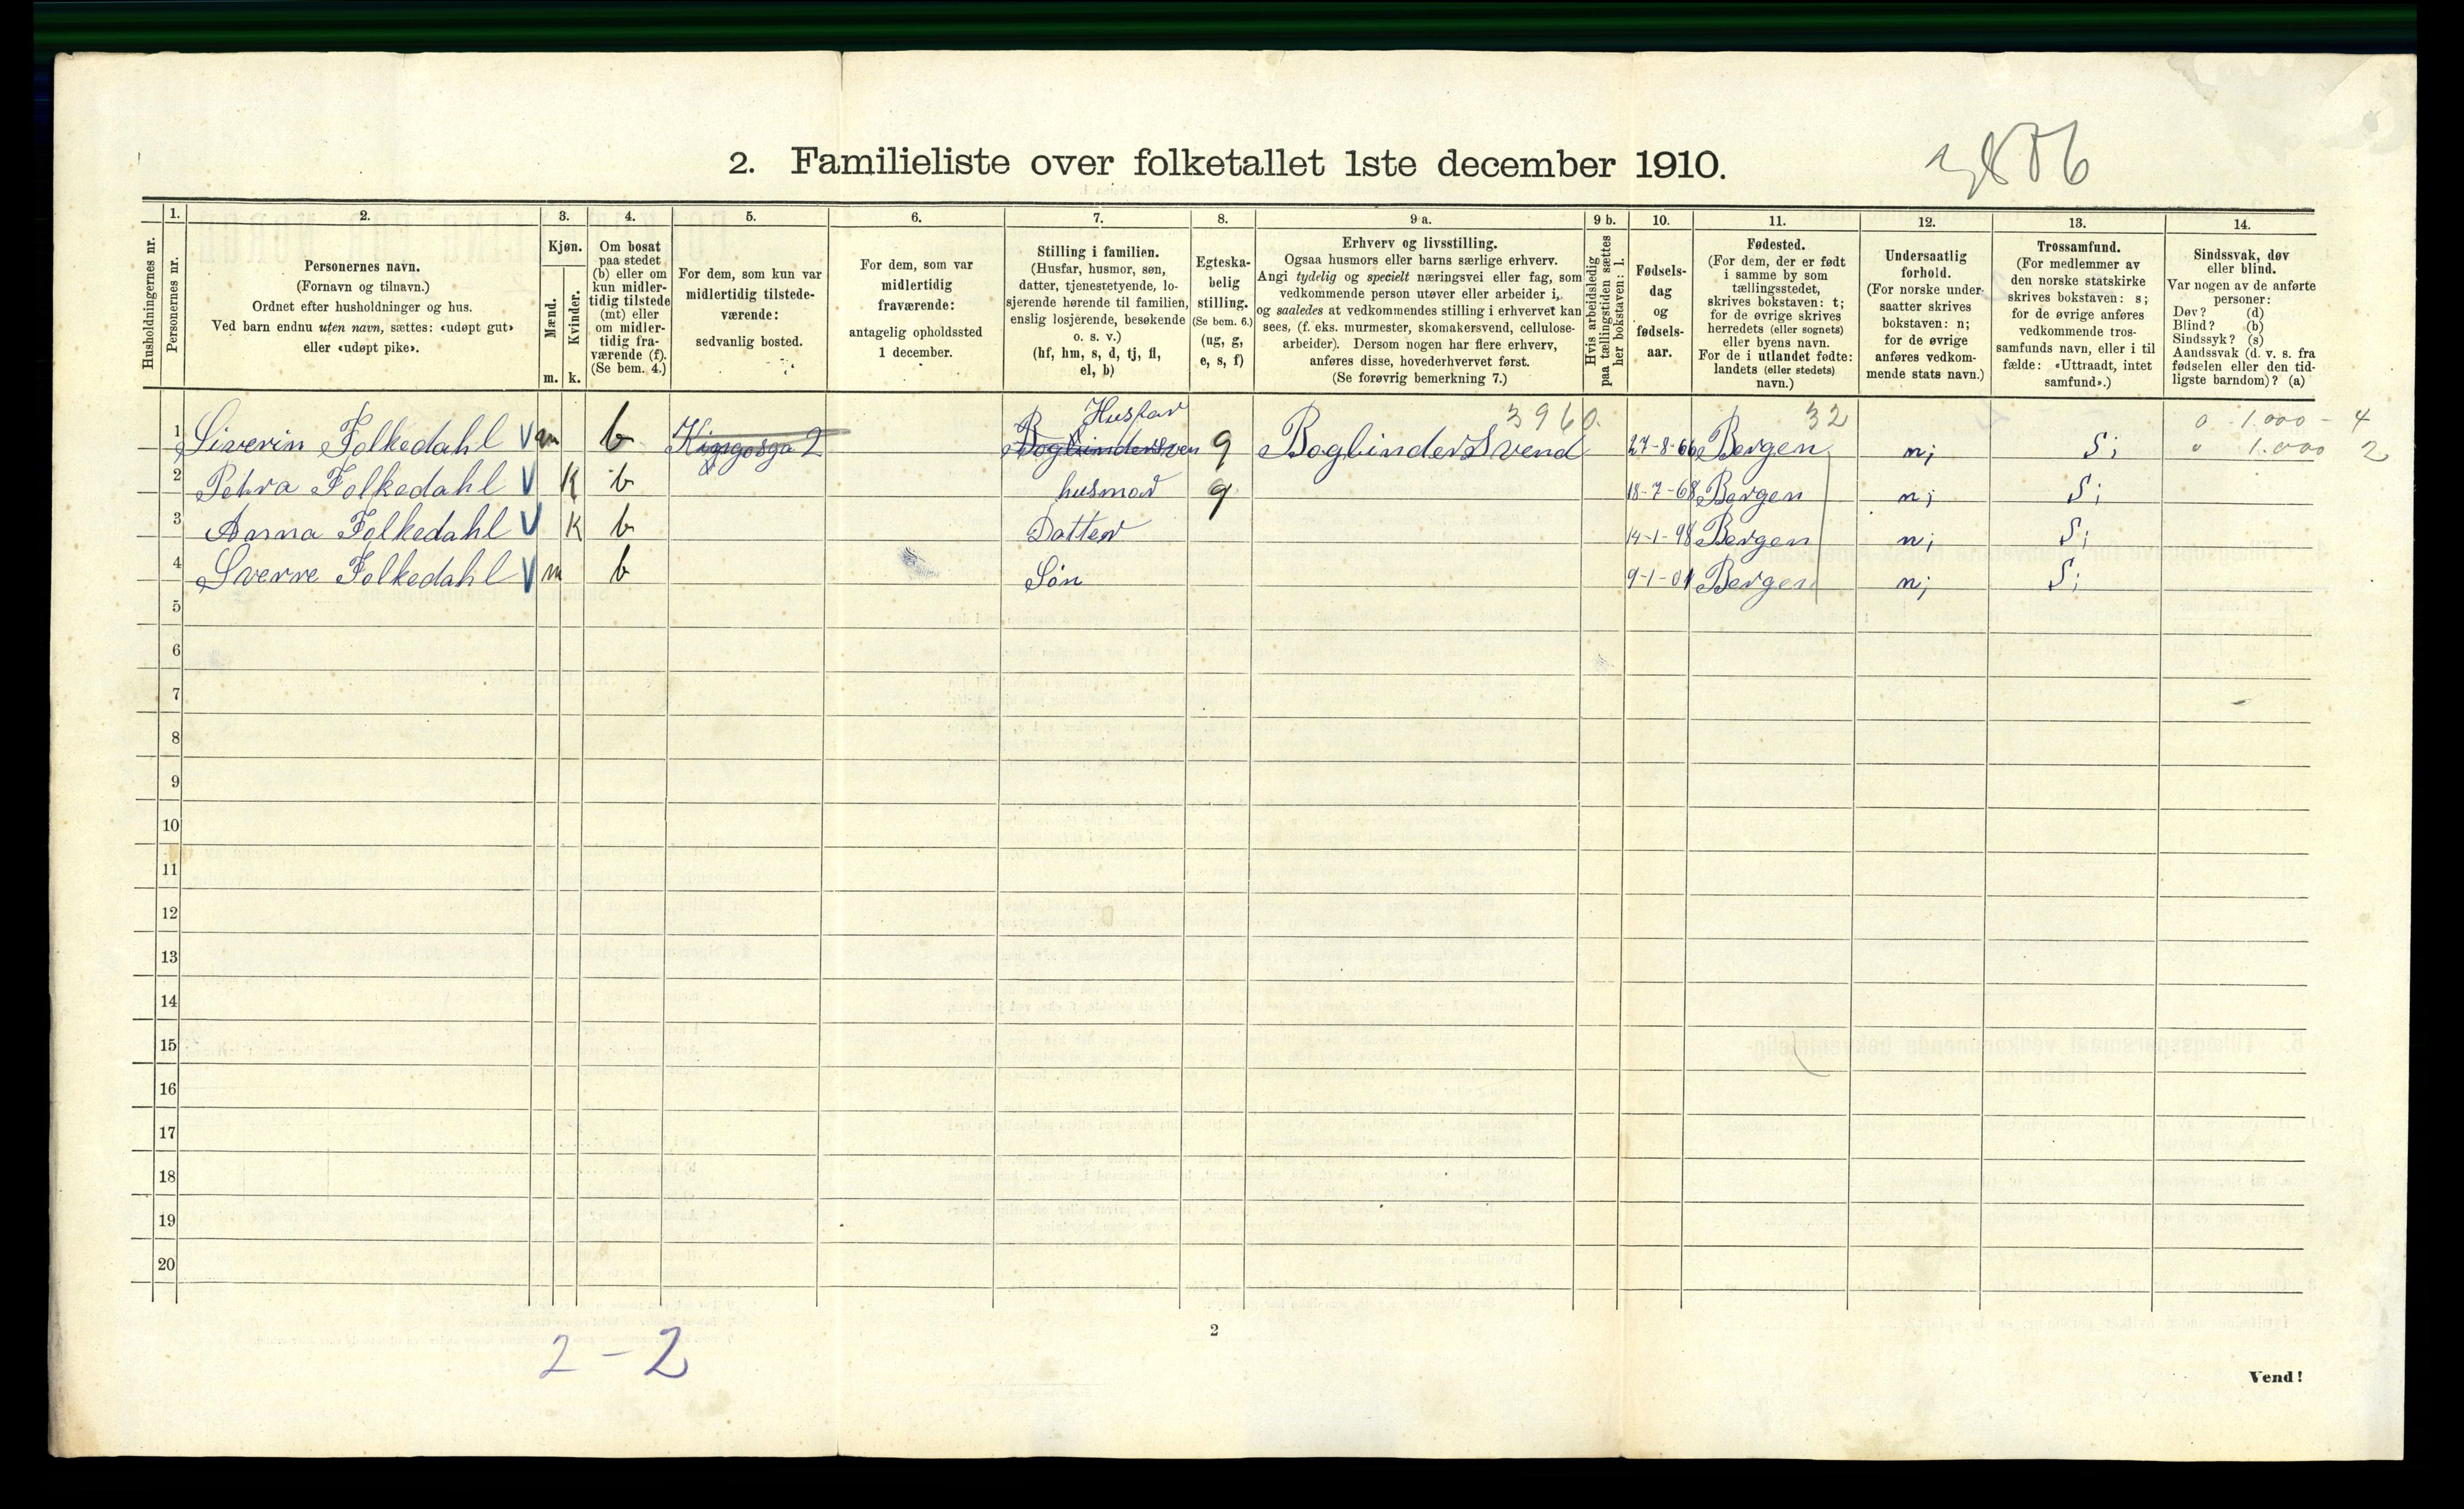 3886
2. Familieliste over folketallet 1ste december 1910.
Husholdningernes nr.
1. Personernes nr.
2. Personernes navn.
(Fornavn og tilnavn.)
Ordnet efter husholdninger og hus.
Ved barn endnu uten navn, sættes: «udøpt gut»
eller «udøpt pike».
3. Kjøn.
Mænd. m.
Kvinder. k.
4. Om bosat
paa stedet
(b) eller om
kun midler-
tidig tilstede
(mt) eller
om midler-
tidig fra-
værende (f).
(Se bem. 4.)
5. For dem, som kun var
midlertidig tilstede-
værende:
sedvanlig bosted.
6. For dem, som var
midlertidig
fraværende:
antagelig opholdssted
1 december.
7. Stilling i familien.
(Husfar, husmor, søn,
datter, tjenestetyende, lo-
sjerende hørende til familien,
enslig losjerende, besøkende
o. s. v.)
(hf, hm, s, d, tj, fl,
el, b)
8. Egteska-
belig
stilling.
(Se bem. 6.)
(ug, g,
e, s, f)
9 a. Erhverv og livsstilling.
Ogsaa husmors eller barns særlige erhverv.
Angi tydelig og specielt næringsvei eller fag, som
vedkommende person utøver eller arbeider i,
og saaledes at vedkommendes stilling i erhvervet kan
sees, (f. eks. murmester, skomakersvend, cellulose-
arbeider). Dersom nogen har flere erhverv,
anføres disse, hovederhvervet først.
(Se forøvrig bemerkning 7.)
9 b. Hvis arbeidsledig
paa tællingstiden sættes
her bokstaven: l.
10. Fødsels-
dag
og
fødsels-
aar.
11. Fødested.
(For dem, der er født
i samme by som
tællingsstedet,
skrives bokstaven: t;
for de øvrige skrives
herredets (eller sognets)
eller byens navn.
For de i utlandet fødte:
landets (eller stedets)
navn.)
12. Undersaatlig
forhold.
(For norske under-
saatter skrives
bokstaven: n;
for de øvrige
anføres vedkom-
mende stats navn.)
13. Trossamfund.
(For medlemmer av
den norske statskirke
skrives bokstaven: s;
for de øvrige anføres
vedkommende tros-
samfunds navn, eller i til
fælde: «Uttraadt, intet
samfund».)
14. Sindssvak, døv
eller blind.
Var nogen av de anførte
personer:
Døv? (d)
Blind? (b)
Sindssyk? (s)
Aandssvak (d. v. s. fra
fødselen eller den tid-
ligste barndom)? (a)
Husfar 3960. 32 0 1.000 - 4
1 Siverin Folkedahl V m b Kingosga 2 Bogbindersven g BogbinderSvend 27-8-66 Bergen n; S; 0 1.000 2
2 Petra Folkedahl V K b husmor g 18-7-68 Bergen n; S;
3 Anna Folkedahl V K b Datter 14-1-98 Bergen n; S;
4 Sverre Folkedahl V m b Søn 9-1-01 Bergen n; S;
5
6
7
8
9
10
11
12
13
14
15
16
17
18
19
20
2 - 2
2
Vend!